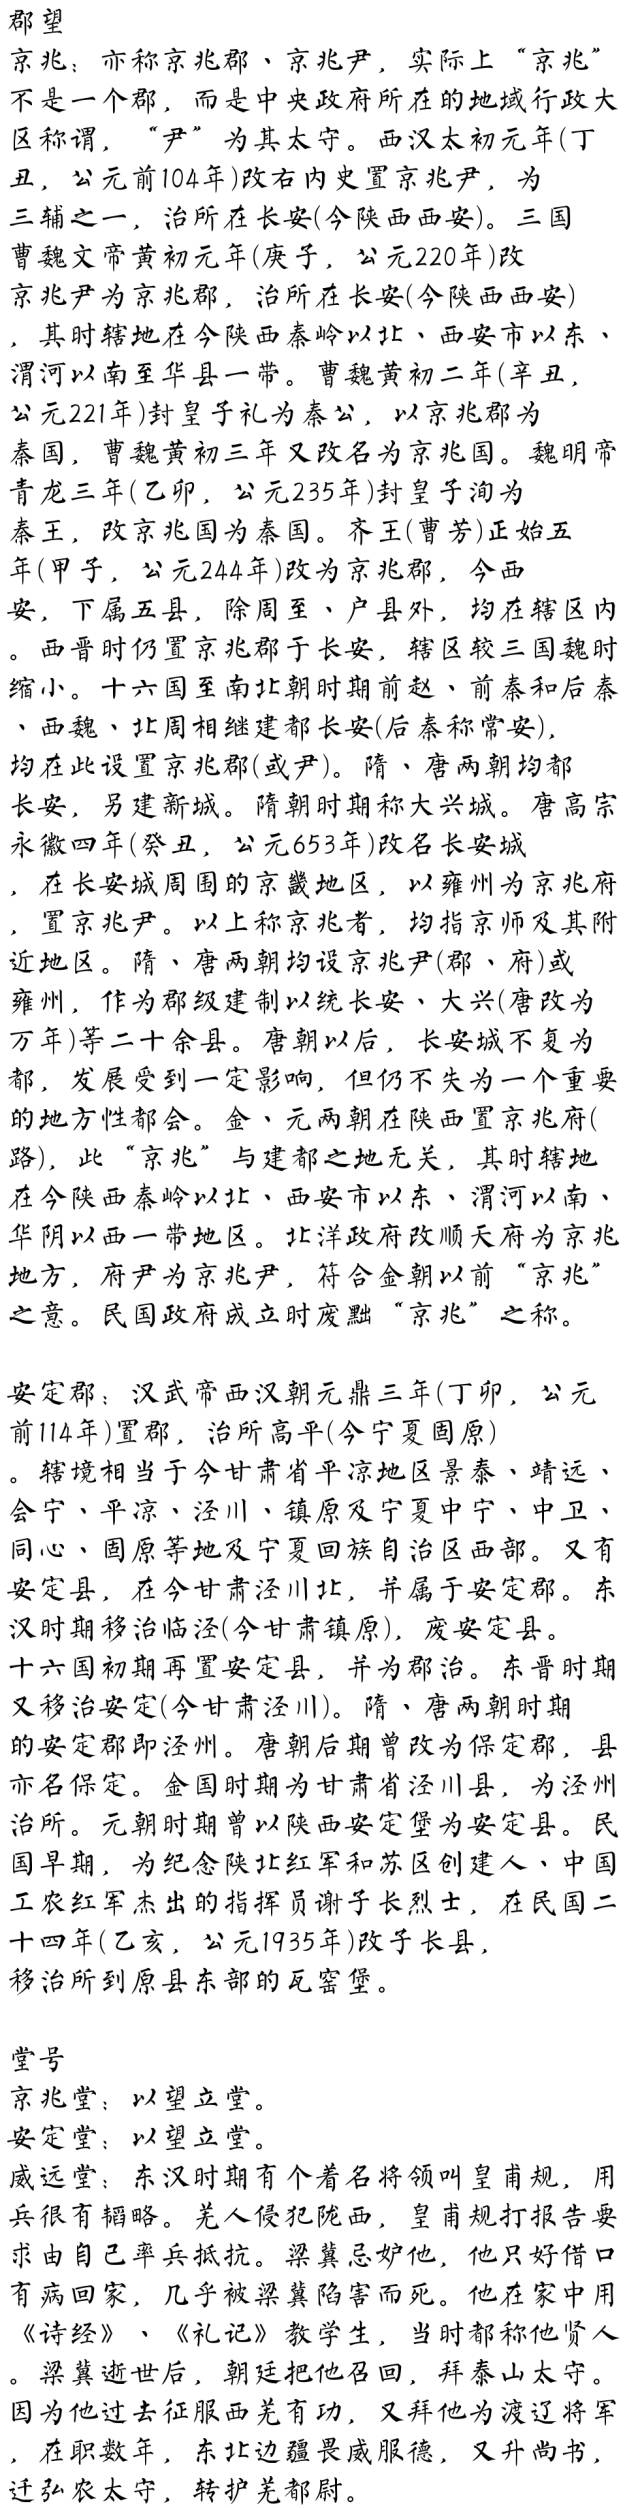 郡望
京兆：亦称京兆郡、京兆尹，实际上“京兆”
不是一个郡，而是中央政府所在的地域行政大
区称谓，“尹”为其太守。西汉太初元年(丁
丑，公元前104年)改右内史置京兆尹，为
三辅之一，治所在长安(今陕西西安)。三国
曹魏文帝黄初元年(庚子，公元220年)改
京兆尹为京兆郡，治所在长安(今陕西西安)
，其时辖地在今陕西秦岭以北、西安市以东、
渭河以南至华县一带。曹魏黄初二年(辛丑，
公元221年)封皇子礼为秦公，以京兆郡为
秦国，曹魏黄初三年又改名为京兆国。魏明帝
青龙三年(乙卯，公元235年)封皇子洵为
秦王，改京兆国为秦国。齐王(曹芳)正始五
年(甲子，公元244年)改为京兆郡，今西
安，下属五县，除周至、户县外，均在辖区内
。西晋时仍置京兆郡于长安，辖区较三国魏时
缩小。十六国至南北朝时期前赵、前秦和后秦
、西魏、北周相继建都长安(后秦称常安)，
均在此设置京兆郡(或尹)。隋、唐两朝均都
长安，另建新城。隋朝时期称大兴城。唐高宗
永徽四年(癸丑，公元653年)改名长安城
，在长安城周围的京畿地区，以雍州为京兆府
，置京兆尹。以上称京兆者，均指京师及其附
近地区。隋、唐两朝均设京兆尹(郡、府)或
雍州，作为郡级建制以统长安、大兴(唐改为
万年)等二十余县。唐朝以后，长安城不复为
都，发展受到一定影响，但仍不失为一个重要
的地方性都会。金、元两朝在陕西置京兆府(
路)，此“京兆”与建都之地无关，其时辖地
在今陕西秦岭以北、西安市以东、渭河以南、
华阴以西一带地区。北洋政府改顺天府为京兆
地方，府尹为京兆尹，符合金朝以前“京兆”
之意。民国政府成立时废黜“京兆”之称。
安定郡：汉武帝西汉朝元鼎三年(丁卯，公元
前114年)置郡，治所高平(今宁夏固原)
。辖境相当于今甘肃省平凉地区景泰、靖远、
会宁、平凉、泾川、镇原及宁夏中宁、中卫、
同心、固原等地及宁夏回族自治区西部。又有
安定县，在今甘肃泾川北，并属于安定郡。东
汉时期移治临泾(今甘肃镇原)，废安定县。
十六国初期再置安定县，并为郡治。东晋时期
又移治安定(今甘肃泾川)。隋、唐两朝时期
的安定郡即泾州。唐朝后期曾改为保定郡，县
亦名保定。金国时期为甘肃省泾川县，为泾州
治所。元朝时期曾以陕西安定堡为安定县。民
国早期，为纪念陕北红军和苏区创建人、中国
工农红军杰出的指挥员谢子长烈士，在民国二
十四年(乙亥，公元1935年)改子长县，
移治所到原县东部的瓦窑堡。
堂号
京兆堂：以望立堂。
安定堂：以望立堂。
威远堂：东汉时期有个着名将领叫皇甫规，用
兵很有韬略。羌人侵犯陇西，皇甫规打报告要
求由自己率兵抵抗。梁冀忌妒他，他只好借口
有病回家，几乎被梁冀陷害而死。他在家中用
《诗经》、《礼记》教学生，当时都称他贤人
。梁冀逝世后，朝廷把他召回，拜泰山太守。
因为他过去征服西羌有功，又拜他为渡辽将军
，在职数年，东北边疆畏威服德，又升尚书，
迁弘农太守，转护羌都尉。